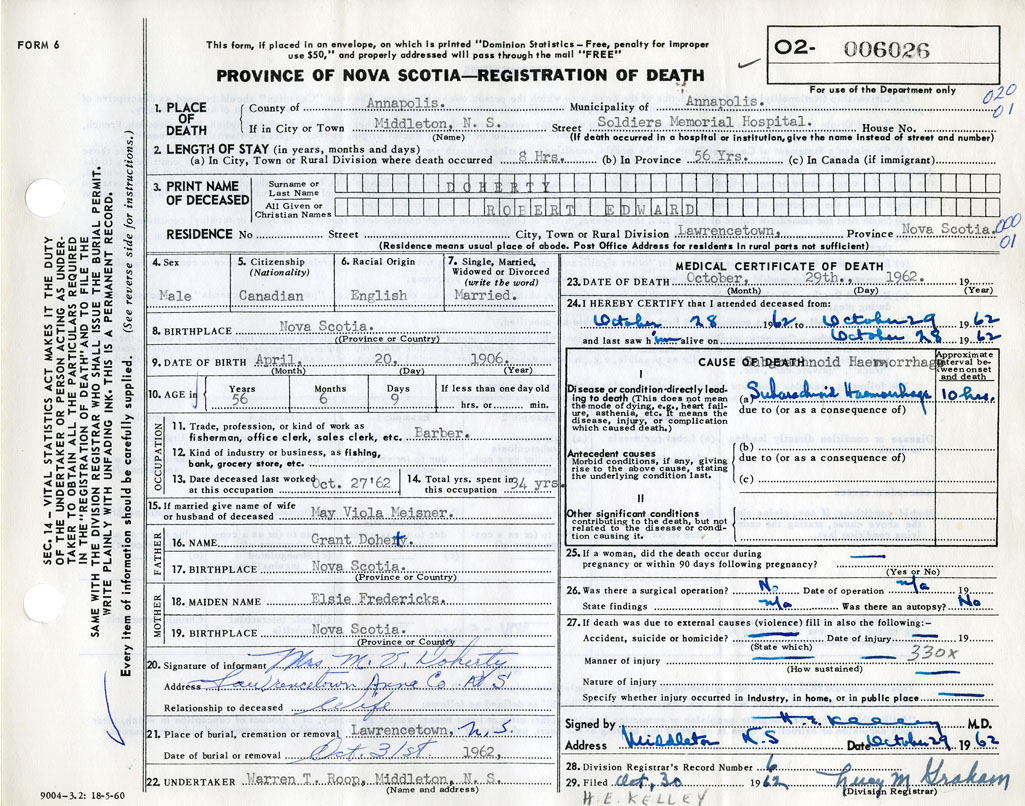 FORM 6
This form, if placed in an envelope, on which is printed "Dominion Statistics – Free, penalty for improper
use $50," and properly addressed will pass through the mail "FREE"
PROVINCE OF NOVA SCOTIA—REGISTRATION OF DEATH
O2- 006026
For use of the Department only
020
01
SEC. 14 – VITAL STATISTICS ACT MAKES IT THE DUTY
OF THE UNDERTAKER OR PERSON ACTING AS UNDER-
TAKER TO OBTAIN ALL THE PARTICULARS REQUIRED
IN THE "REGISTRATION OF DEATH" AND TO FILE THE
SAME WITH THE DIVISION REGISTRAR WHO SHALL ISSUE THE BURIAL PERMIT.
WRITE PLAINLY WITH UNFADING INK - THIS IS A PERMANENT RECORD.
Every item of information should be carefully supplied. (See reverse side for instructions.)
1. PLACE OF DEATH County of Annapolis. Municipality of Annapolis.
If in City or Town Middleton, N. S. Street Soldiers Memorial Hospital. House No.
(Name) (If death occurred in a hospital or institution, give the name instead of street and number)
2. LENGTH OF STAY (in years, months and days)
(a) In City, Town or Rural Division where death occurred 8 Hrs. (b) In Province 56 Yrs. (c) In Canada (if immigrant)
3. PRINT NAME OF DECEASED Surname or Last Name DOHERTY
All Given or Christian Names ROBERT EDWARD
RESIDENCE No Street City, Town or Rural Division Lawrencetown, Province Nova Scotia.
000
01
(Residence means usual place of abode. Post Office Address for residents in rural parts not sufficient)
4. Sex Male
5. Citizenship (Nationality) Canadian
6. Racial Origin English
7. Single, Married, Widowed or Divorced (write the word) Married.
8. BIRTHPLACE Nova Scotia.
((Province or Country)
9. DATE OF BIRTH April, 20, 1906.
(Month) (Day) (Year)
10. AGE in Years 56 Months 6 Days 9 If less than one day old hrs. or min.
OCCUPATION
11. Trade, profession, or kind of work as
fisherman, office clerk, sales clerk, etc. Barber.
12. Kind of industry or business, as fishing,
bank, grocery store, etc.
13. Date deceased last worked at this occupation Oct. 27'62
14. Total yrs. spent in this occupation 34 yrs.
15. If married give name of wife
or husband of deceased May Viola Meisner.
FATHER
16. NAME Grant Doherty.
17. BIRTHPLACE Nova Scotia.
(Province or Country)
MOTHER
18. MAIDEN NAME Elsie Fredericks.
19. BIRTHPLACE Nova Scotia.
(Province or Country)
20. Signature of informant Mrs M. V. Doherty
Address Lawrencetown Anna Co. N S
Relationship to deceased Wife
21. Place of burial, cremation or removal Lawrencetown, N. S.
Date of burial or removal Oct. 31st 1962,
22. UNDERTAKER Warren T. Roop, Middleton, N. S.
(Name and address)
9004-3.2: 18-5-60
MEDICAL CERTIFICATE OF DEATH
23. DATE OF DEATH October, 29th., 1962. 19
(Month) (Day) (Year)
24. I HEREBY CERTIFY that I attended deceased from:
October 28 1962 to October 29 1962
and last saw h im alive on October 28 1962
CAUSE OF DEATH Subarachnoid Haemorrhage
Approximate interval between onset and death
I
Disease or condition directly lead-
ing to death (This does not mean
the mode of dying, e.g., heart fail-
ure, asthenia, etc. It means the
disease, injury, or complication
which caused death.)
(a) Subarachnoid Haemorrhage 10 hrs.
due to (or as a consequence of)
Antecedent causes
Morbid conditions, if any, giving
rise to the above cause, stating
the underlying condition last.
(b)
due to (or as a consequence of)
(c)
II
Other significant conditions
contributing to the death, but not
related to the disease or condi-
tion causing it.
25. If a woman, did the death occur during
pregnancy or within 90 days following pregnancy?
(Yes or No)
26. Was there a surgical operation? No. Date of operation n/a 19
State findings n/a Was there an autopsy? No
27. If death was due to external causes (violence) fill in also the following:–
Accident, suicide or homicide? Date of injury 19
(State which) 330X
Manner of injury
(How sustained)
Nature of injury
Specify whether injury occurred in industry, in home, or in public place
Signed by H E Kelley M.D.
Address Middleton N.S Date October 29 1962
28. Division Registrar's Record Number 6
29. Filed Oct, 30 1962 Lucy M Graham
(Division Registrar)
H. E. KELLEY